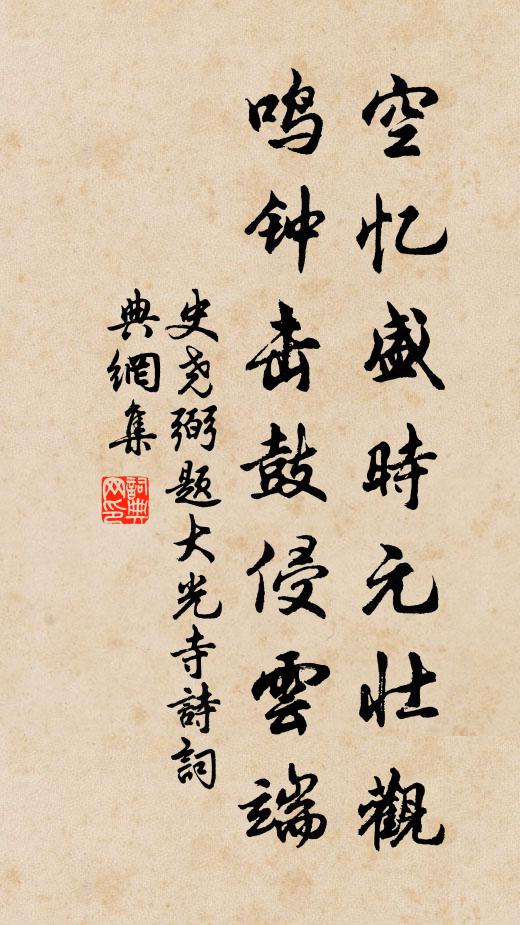 空忆盛時元壮觀
鸣钟击鼓侵雲端
史尧弼题大光寺詩詞
典網集
詞典网印